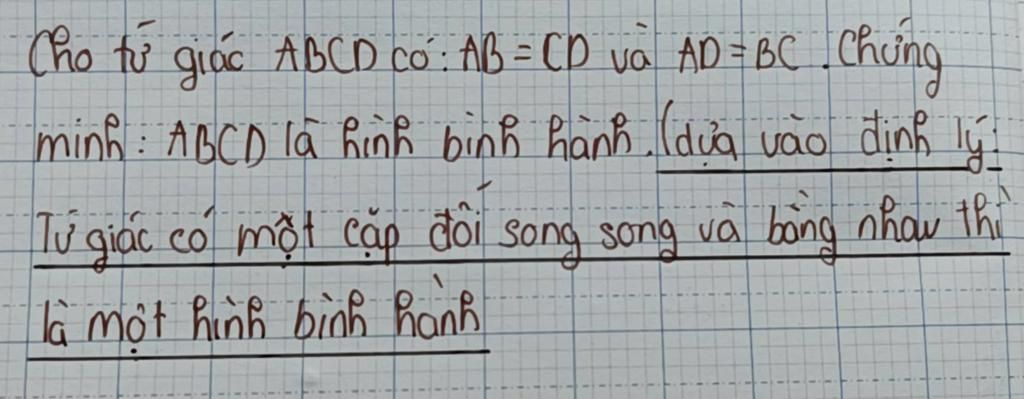 Cho tứ giác ABCD có: AB = CD và AD = BC. Chứng
minh: ABCD là hình bình hành. (dựa vào định lý:
Tứ giác có một cặp đối song song và bằng nhau thì
là một hình bình hành